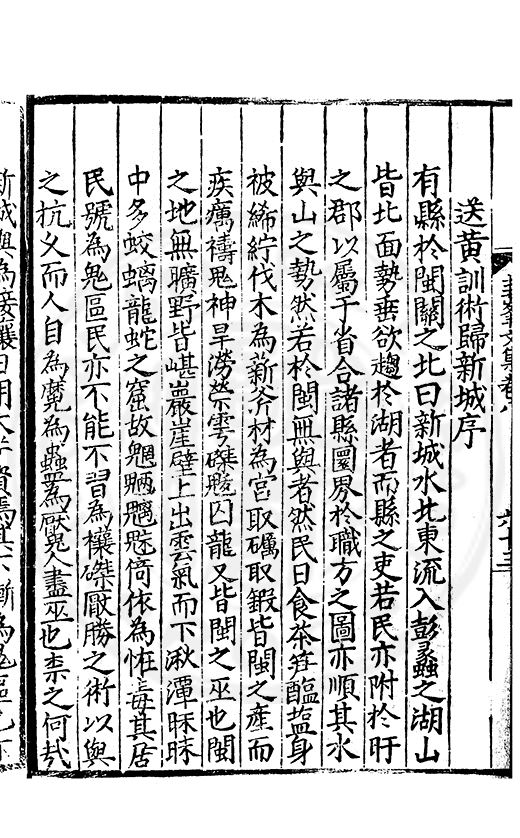 送黃訓術歸新城序
有縣於閩關之北曰新城水北東流入彭蠡之湖山
皆北面勢垂欲趨於湖者而縣之吏若民亦附於旴
之郡以屬于省合諸縣圖界於職方之圖亦順其水
與山之勢然若於閩無與者然民日食茶筍醢鹽身
被絺紵伐木為薪斧材為宮取礪取鍛皆閩之產而
疾癘禱鬼神旱澇禜雩磔魃囚龍又皆閩之巫也閩
之地無曠野皆嵁巖崖壁上出雲氣而下湫潭昧昧
中多蛟螭龍蛇之窟故魍魎魑魅倚依為怪毒其居
民號為鬼區民亦不能不習為禳磔厭勝之術以與
之抗久而人自為魔為蠱為厭鬼人盡巫也柰之何哉
新城與為接壤日用大半資焉其